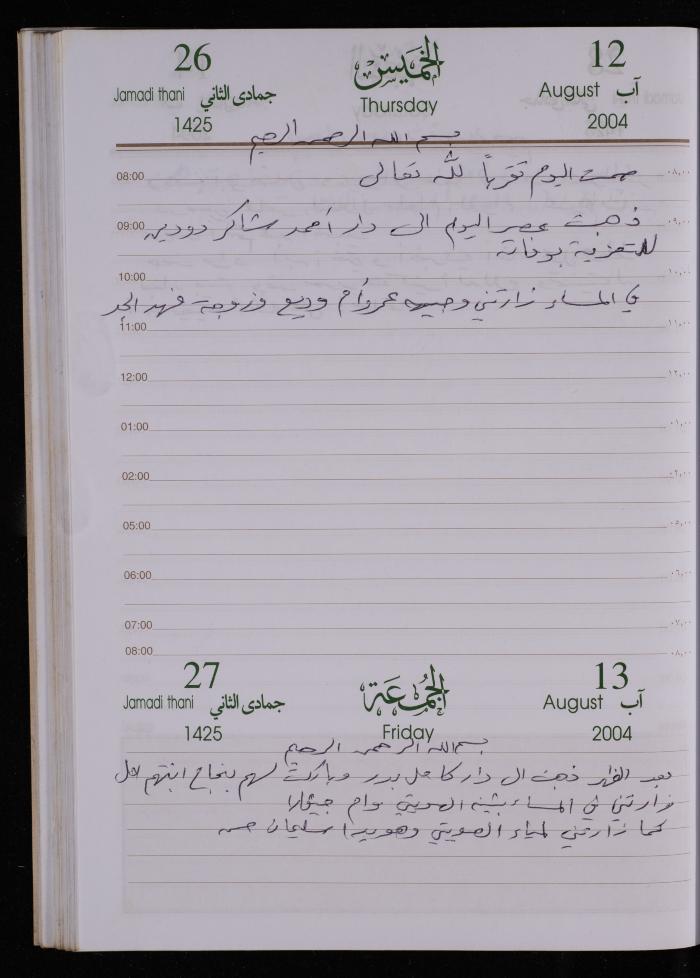 26 الخميس 12
Jamadi thani جمادى الثاني Thursday August آب
1425 2004
بسم الله الرحمن الرحيم
08:00 صمت اليوم تقرباً لله تعالى ٠٨,٠٠
09:00 ذهبت عصر اليوم الى دار أحمد شاكر دودين ٠٩,٠٠
للتعزية بوفاته
10:00 ١٠,٠٠
في المساء زارتني وجيهه عمرو أم وديع وزوجة فهد
11:00 ١١,٠٠
12:00 ١٢,٠٠
01:00 ٠١,٠٠
02:00 ٠٢,٠٠
05:00 ٠٥,٠٠
06:00 ٠٦,٠٠
07:00 ٠٧,٠٠
08:00 ٠٨,٠٠
27 الجمعة 13
Jamadi thani جمادى الثاني Friday August آب
1425 2004
بسم الله الرحمن الرحيم
بعد الظهر ذهبت الى دار كامل بدر وباركت لهم بنجاح ابنتهم
زارتني في المساء بثينه الصويتي وام
كما زارتني لمياء الصويتي وهويدا سليمان